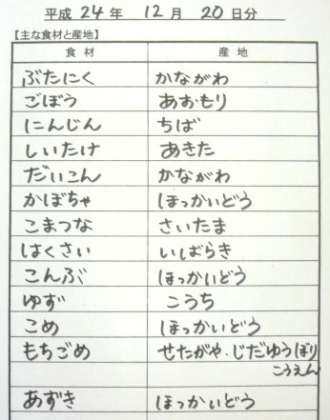 平成 24 年 12 月 20 日分
【主な食材と産地】
食材 産地
ぶたにく かながわ
ごぼう あおもり
にんじん ちば
しいたけ あきた
だいこん かながわ
かぼちゃ ほっかいどう
こまつな さいたま
はくさい いばらき
こんぶ ほっかいどう
ゆず こうち
こめ ほっかいどう
もちごめ せたがや・じだゆうぼり
こうえん
あずき ほっかいどう